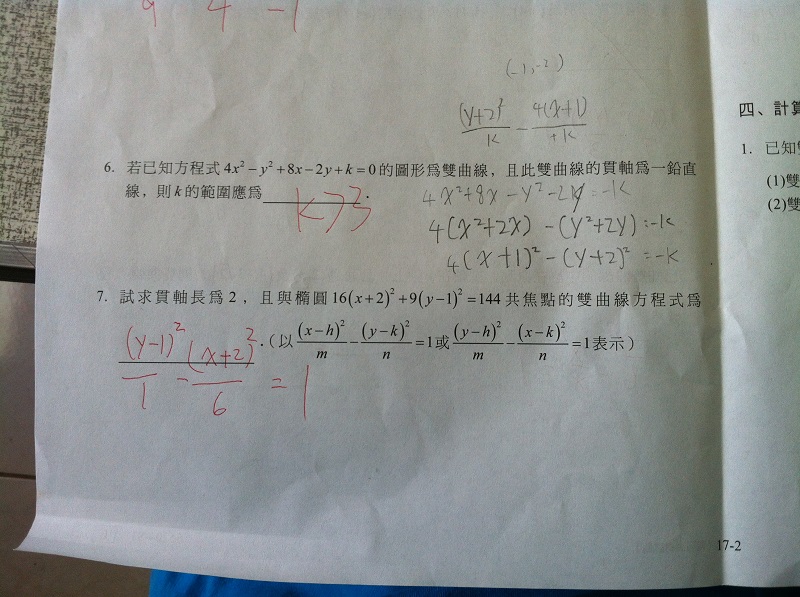 9 4 -1
(-1, -2)
(y+2)²/k - 4(x+1)/+k
四、計算
6. 若已知方程式 4x²-y²+8x-2y+k=0 的圖形為雙曲線，且此雙曲線的貫軸為一鉛直
線，則 k 的範圍應為 k>3 .
4x²+8x-y²-2y=-k
4(x²+2x)-(y²+2y)=-k
4(x+1)²-(y+2)²=-k
1. 已知
(1)雙
(2)雙
7. 試求貫軸長為 2，且與橢圓 16(x+2)²+9(y-1)²=144 共焦點的雙曲線方程式為
(y-1)²/1 - (x+2)²/6 = 1 .（以 (x-h)²/m - (y-k)²/n =1 或 (y-h)²/m - (x-k)²/n =1 表示）
17-2